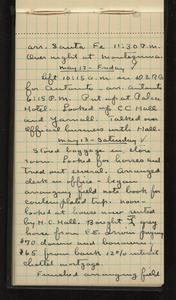 arr. Santa Fe 11:30 P.M.
Over night at Montezuma.
May 12 - Friday
Left 10:15 A.M. on D&RG
for Antonito - arr. Antonito
6:15 P.M. Put up at Palace
Hotel. Looked up CC Hall
and Yarnall. Talked over
official business with Hall.
May 13 - Saturday
Stored baggage in store
room. Looked for horses and
tried out several. Arranged
desk in office - began
arranging field note book for
contemplated trip.
looked at horse near rented
by H.C. Hall. Bought gray
horse from V.E. paying
$70 down and borrowing
$65 from bank 12% interest
chattel mortgage.
Finished arranging field